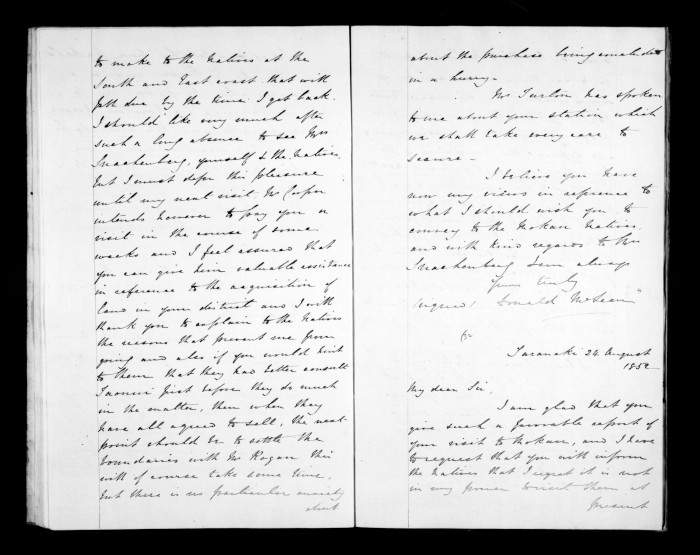 to make to the Natives at the
South and East coast that will
fall due by the time I get back.
I should like very much after
such a long absence to see Mrs
Snachenberg, yourself & the Natives,
but I must defer this pleasure
until my next visit. Mr Cooper
intends however to pay you a
visit in the course of some
weeks and I feel assured that
you can give him valuable assistance
in reference to the acquisition of
land in your district and I will
thank you to explain to the Natives
the reasons that prevent me from
going and also if you would hint
to them that they had better consult
first before they do much
in the matter, then when they
have all agreed to sell, the next
point should be to settle the
boundaries with Mr Rogan this
will of course take some time,
but there is no particular anxiety
about
about the purchase being concluded
in a hurry.
Mr Turton has spoken
to me about your station which
we shall take every care to
secure.
I believe you have
now my views in reference to
what I should wish you to
convey to the Mokau Natives.
and with kind regards to Mrs
Snachenberg I am always
Yours truly
(signed) Donald McLean"
Taranaki 24 August
1852
My dear Sir.
I am glad that you
give such a favorable report of
your visit to Mokau, and I have
to request that you will inform
the Natives that I regret it is not
in my power to visit them at
present